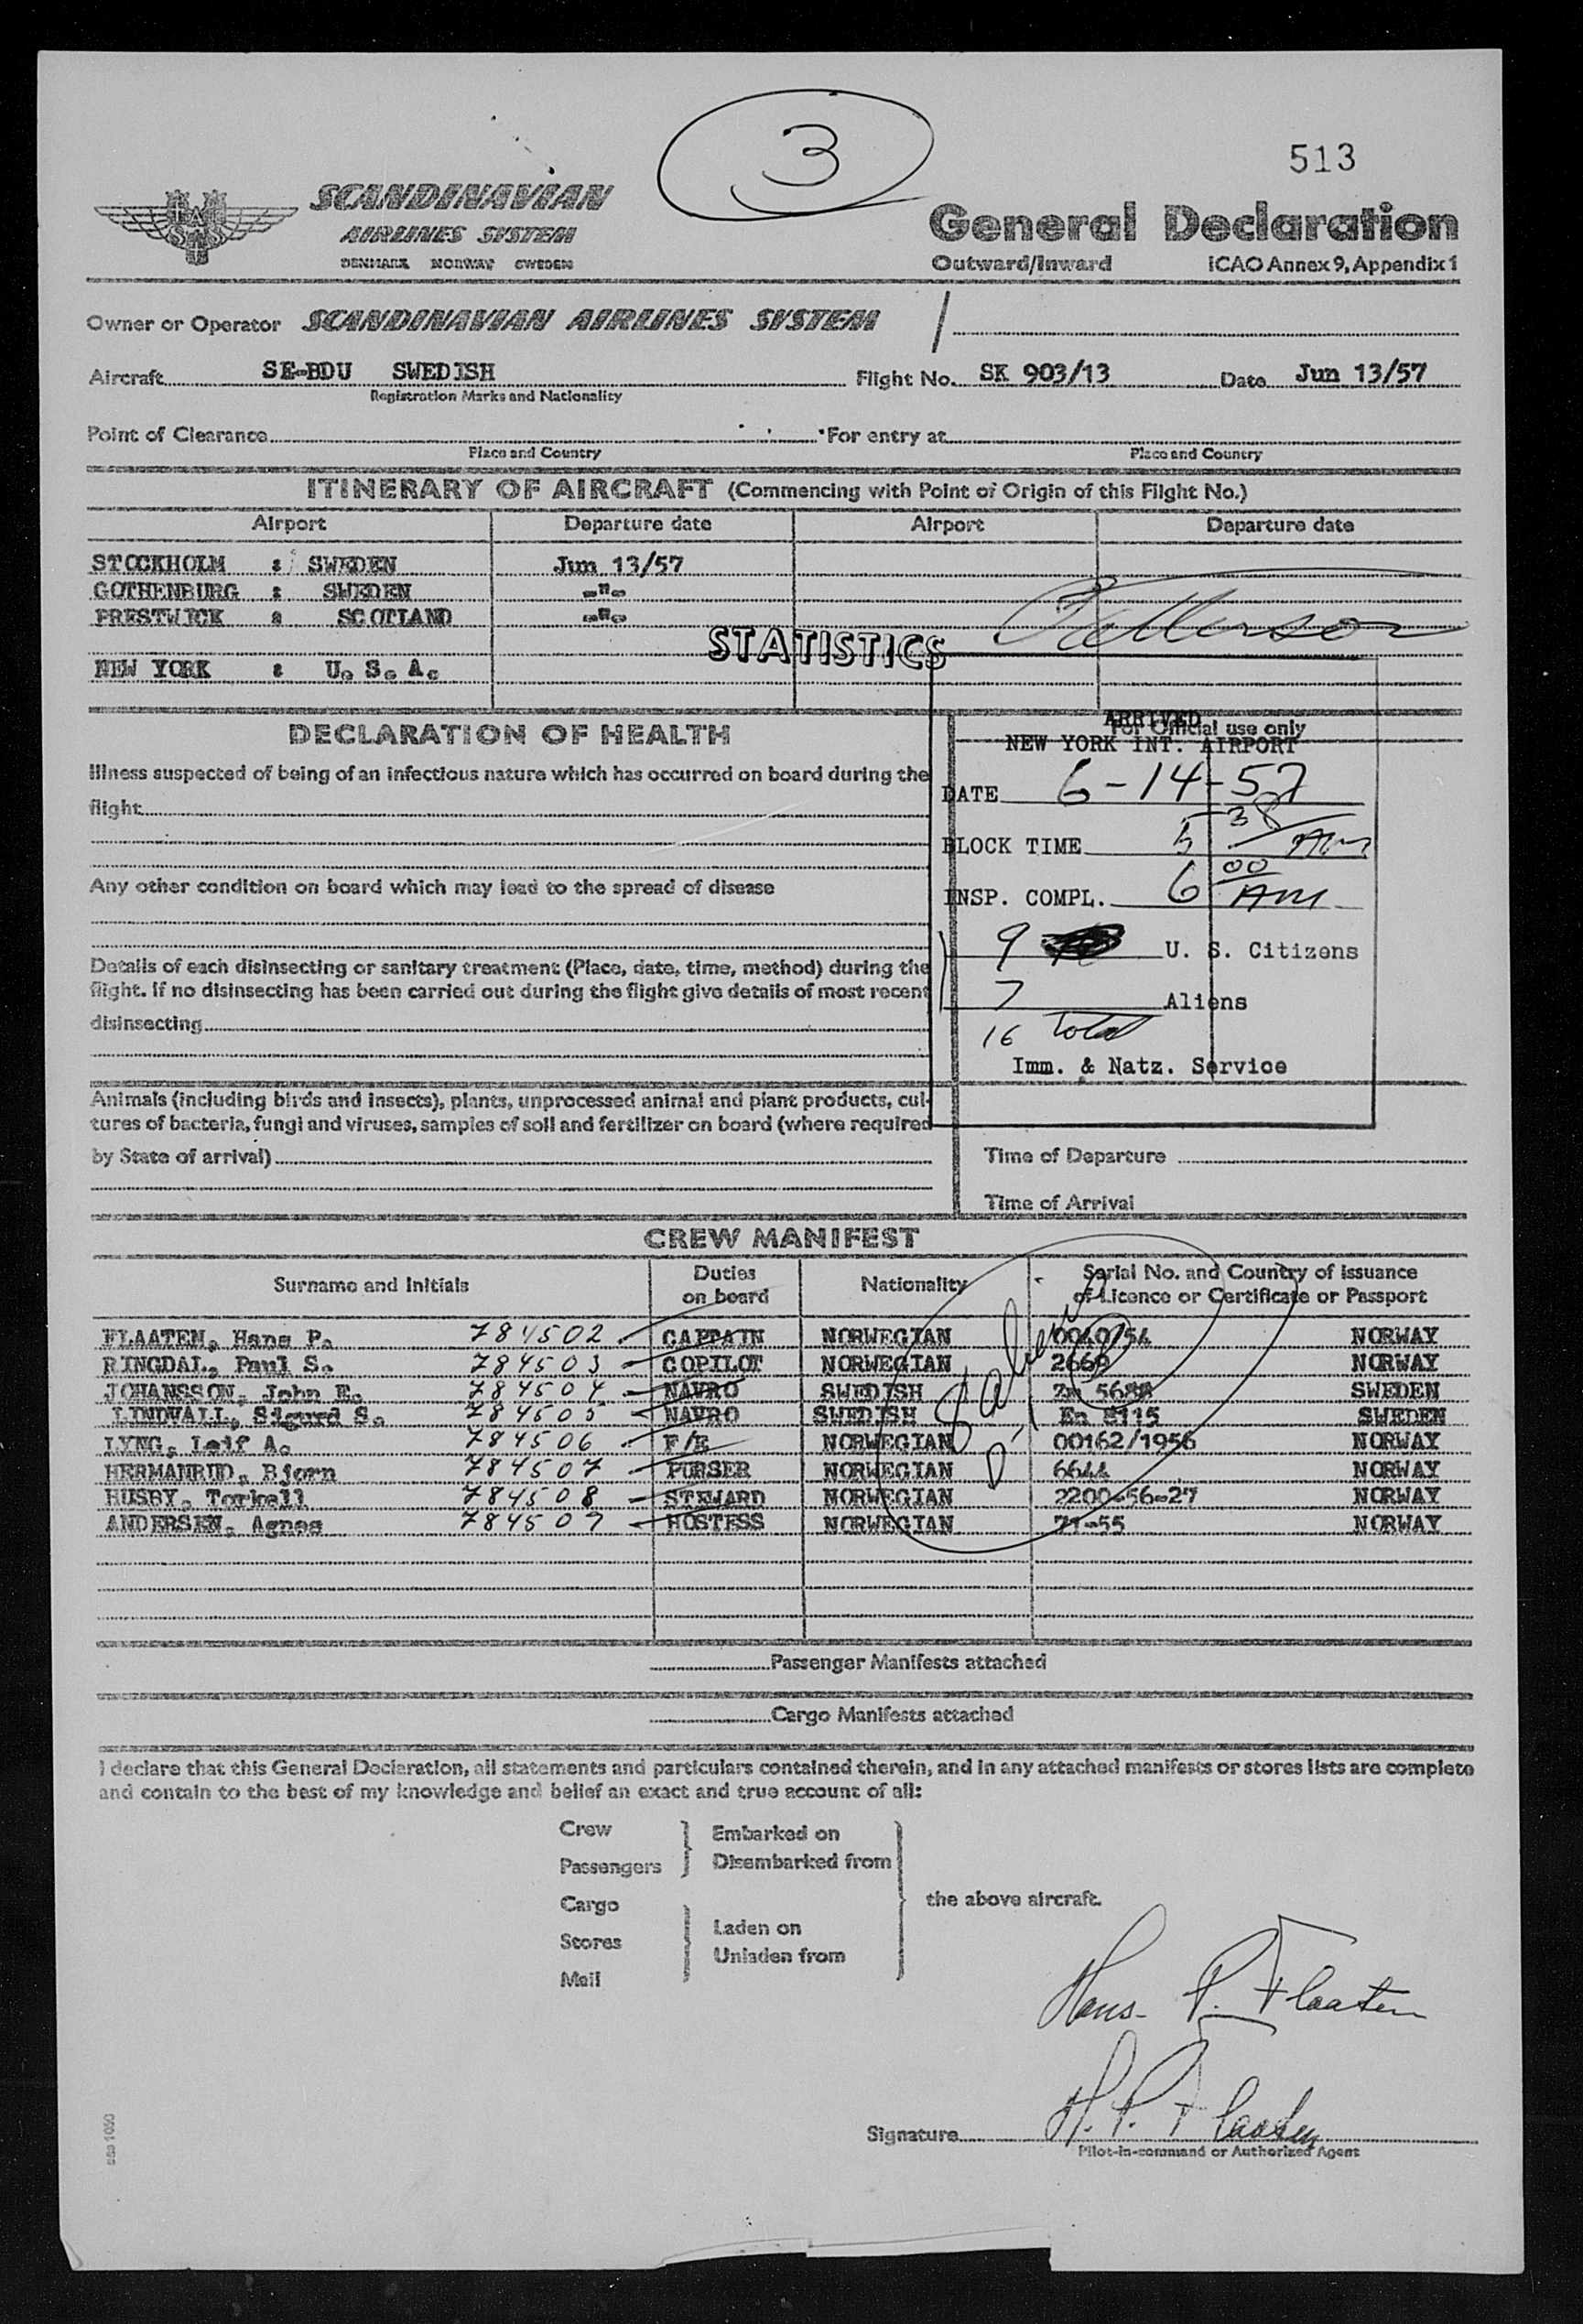 3
513
SCANDINAVIAN
AIRLINES SYSTEM
DENMARK NORWAY SWEDEN
General Declaration
Outward/Inward ICAO Annex 9, Appendix 1
Owner or Operator SCANDINAVIAN AIRLINES SYSTEM /
Aircraft SE-BDU SWEDISH Flight No. SK 903/13 Date Jun 13/57
Registration Marks and Nationality
Point of Clearance For entry at
Place and Country Place and Country
ITINERARY OF AIRCRAFT (Commencing with Point of Origin of this Flight No.)
Airport Departure date Airport Departure date
STOCKHOLM : SWEDEN Jun 13/57
GOTHENBURG : SWEDEN -"-
PRESTWICK : SCOTLAND -"-
Patterson
STATISTICS
NEW YORK : U. S. A.
DECLARATION OF HEALTH
Illness suspected of being of an infectious nature which has occurred on board during the
flight
Any other condition on board which may lead to the spread of disease
Details of each disinsecting or sanitary treatment (Place, date, time, method) during the
flight. If no disinsecting has been carried out during the flight give details of most recent
disinsecting
Animals (including birds and insects), plants, unprocessed animal and plant products, cul-
tures of bacteria, fungi and viruses, samples of soil and fertilizer on board (where required
by State of arrival)
For Official use only
ARRIVED
NEW YORK INT. AIRPORT
DATE 6-14-57
BLOCK TIME 5 38 AM
INSP. COMPL. 6 00 AM
9 U. S. Citizens
7 Aliens
16 Total
Imm. & Natz. Service
Time of Departure
Time of Arrival
CREW MANIFEST
Surname and Initials Duties on board Nationality Serial No. and Country of Issuance
of Licence or Certificate or Passport
FLAATEN, Hans P. 784502 CAPTAIN NORWEGIAN 0040/54 NORWAY
RINGDAL, Paul S. 784503 COPILOT NORWEGIAN 2669 NORWAY
JOHANSSON, John E. 784504 NAVRO SWEDISH Zm 5688 SWEDEN
LINDVALL, Sigurd S. 784505 NAVRO SWEDISH En 8115 SWEDEN
LYNG, Leif A. 784506 F/E NORWEGIAN 00162/1956 NORWAY
HERMANRUD, Bjorn 784507 PURSER NORWEGIAN 6644 NORWAY
HUSBY, Torkell 784508 STEWARD NORWEGIAN 2200-56-27 NORWAY
ANDERSEN, Agnes 784509 HOSTESS NORWEGIAN 71-55 NORWAY
8 aliens
D-1
Passenger Manifests attached
Cargo Manifests attached
I declare that this General Declaration, all statements and particulars contained therein, and in any attached manifests or stores lists are complete
and contain to the best of my knowledge and belief an exact and true account of all:
Crew
Passengers
Embarked on
Disembarked from
Cargo
Stores
Mail
Laden on
Unladen from
the above aircraft.
Hans P. Flaaten
H. P. Flaaten
Signature
Pilot-in-command or Authorized Agent
sas 1030